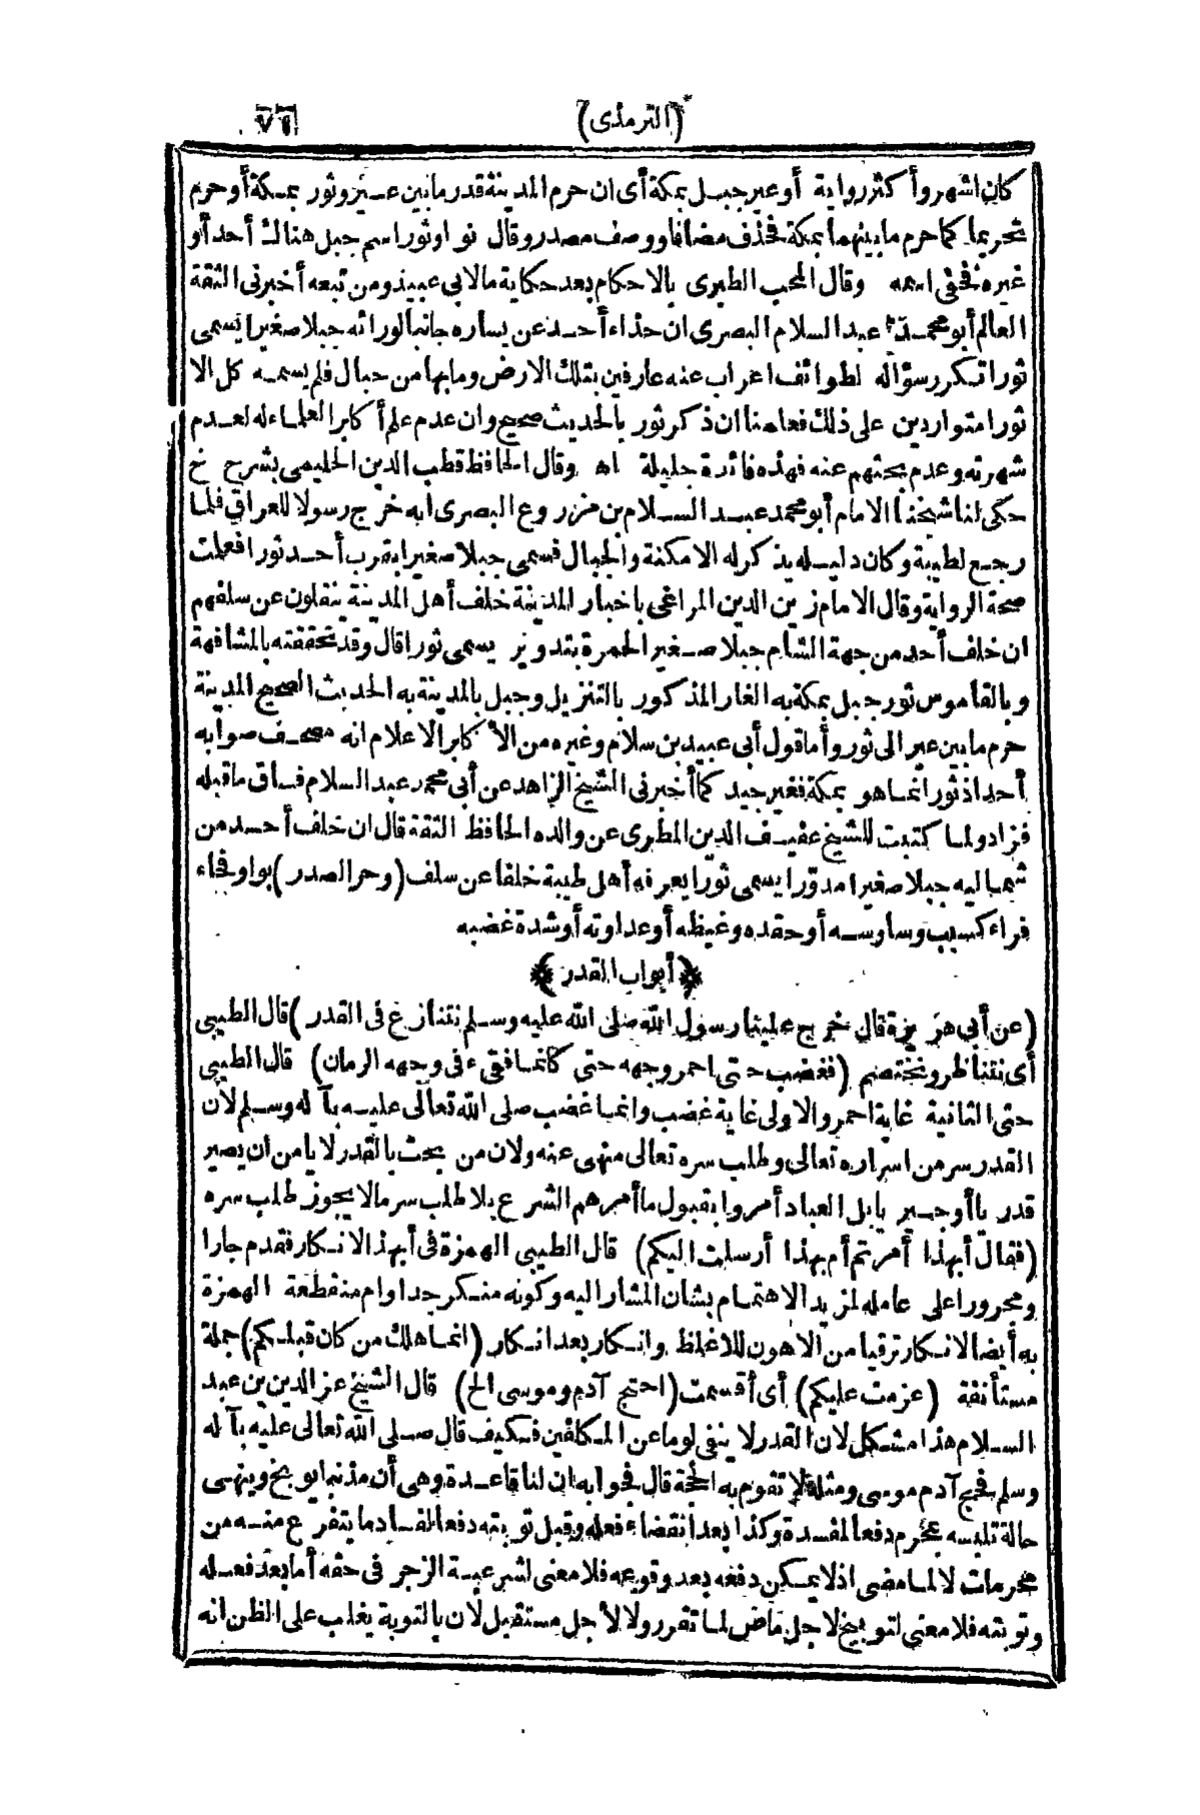 (الترمذى)
٧٦
كان اشهر وأكثر رواية أو عير جبل بمكة أى ان حرم المدينة قدر ما بين عير وثور بمكة أو حرم
تحريما كما حرم ما بينهما بمكة فحذف مضافا ووصف مصدر وقال نو اوثور اسم جبل هناك أحد أو
غيره فخفى اسمه وقال المحب الطبرى بالاحكام بعد حكاية مالابى عبيد ومن تبعه أخبرنى الثقة
العالم أبو محمد عبد السلام البصرى ان حذاء أحد عن يساره جانبا لورائه جبلا صغيرا يسمى
ثورا تكرر سؤاله لطوائف اعراب عنه عارفين بتلك الارض وما بها من جبال فلم يسمه كل الا
ثورا متواردين على ذلك فعلمنا ان ذكر ثور بالحديث صحيح وان عدم علم أكابر العلماء له لعدم
شهرته وعدم بحثهم عنه فهذه فائدة جليلة اه وقال الحافظ قطب الدين الحليمى بشرح خ
حكى لنا شيخنا الامام أبو محمد عبد السلام بن مزروع البصرى انه خرج رسولا للعراق فلما
رجع لطيبة وكان دليله يذكر له الامكنة والجبال فسمى جبلا صغيرا بقرب أحد ثورا فعلمت
صحة الرواية وقال الامام زين الدين المراغى باخبار المدينة خلف أهل المدينة ينقلون عن سلفهم
ان خلف أحد من جهة الشام جبلا صغير الحمرة بتدوير يسمى ثورا قال وقد تحققته بالمشافهة
وبالقاموس ثور جبل بمكة به الغار المذكور بالتنزيل وجبل بالمدينة به الحديث الصحيح المدينة
حرم ما بين عير الى ثور وأما قول أبى عبيد بن سلام وغيره من الأكابر الاعلام انه مصحف صوابه
أحد اذ ثور انما هو بمكة فغير جيد كما أخبرنى الشيخ الزاهد عن أبى محمد عبد السلام فساق ما قبله
فزاد ولما كتبت للشيخ عفيف الدين المطرى عن والده الحافظ الثقة قال ان خلف أحد من
شماليه جبلا صغيرا مدورا يسمى ثورا يعرفه أهل طيبة خلفا عن سلف (وحر الصدر) بواو فحاء
فراء كسبب وساوسه أو حقده وغيظه أو عداوته أو شدة غضبه
﴿أبواب القدر﴾
(عن أبى هريرة قال خرج علينا رسول الله صلى الله عليه وسلم نتنازع فى القدر) قال الطيبى
أى نتناظر ونختصم (فغضب حتى احمر وجهه حتى كانما فقىء فى وجهه الرمان) قال الطيبى
حتى الثانية غاية احمر والاولى غاية غضب وانما غضب صلى الله تعالى عليه بآله وسلم لان
القدر سر من اسراره تعالى وطلب سره تعالى منهى عنه ولان من بحث بالقدر لا يامن ان يصير
قدر يا أو جبريا بل العباد أمروا بقبول ما أمرهم الشرع بلا طلب سر ما لا يجوز طلب سره
(فقال أبهذا أمرتم أم بهذا أرسلت اليكم) قال الطيبى الهمزة فى أبهذا الانكار فقدم جارا
ومجرورا على عامله لمزيد الاهتمام بشان المشار اليه وكونه منكر جدا وام منقطعة الهمزة
به أيضا الانكار ترقيا من الاهون للاغلظ وانكار بعد انكار (انما هلك من كان قبلكم) جملة
مستأنفة (عزمت عليكم) أى أقسمت (احتج آدم وموسى الخ) قال الشيخ عز الدين بن عبد
السلام هذا مشكل لان القدر لا ينفى لوما عن المكلفين فكيف قال صلى الله تعالى عليه بآله
وسلم فحج آدم موسى ومثله لا تقوم به الحجة قال فجوابه ان لنا قاعدة وهى أن مذنبا يوبخ وينهى
حالة تلبسه بمحرم دفعا لمفسدة وكذا بعد انقضاء فعله وقبل توبته دفعا لفساد ما يتفرع منه من
محرمات لا لما مضى اذ لا يمكن دفعه بعد وقوعه فلا معنى لشرعية الزجر فى حقه أما بعد فعله
وتوبته فلا معنى لتوبيخ لا جل ماض لما تقرر ولا لأجل مستقبل لان بالتوبة يغلب على الظن انه